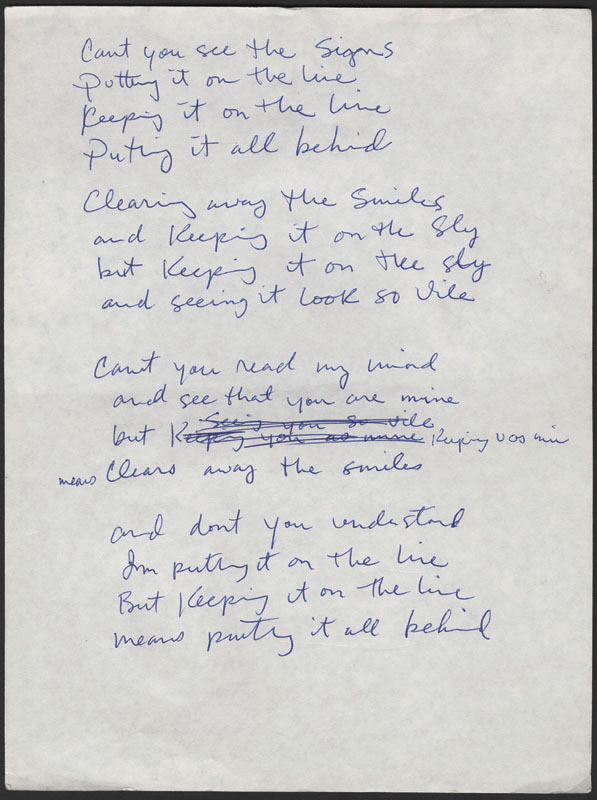 Cant you see the Signs
Putting it on the line
Keeping it on the line
Puting it all behind
Clearing away the Smiles
and Keeping it on the Sly
but Keeping it on the sly
and seeing it look so Vile
Cant you read my mind
and see that you are mine
Seeing you so vile
but Keeping you as mine Keeping U as min
means Clears away the smiles
and dont you understand
Im putting it on the line
But Keeping it on the line
means putting it all behind